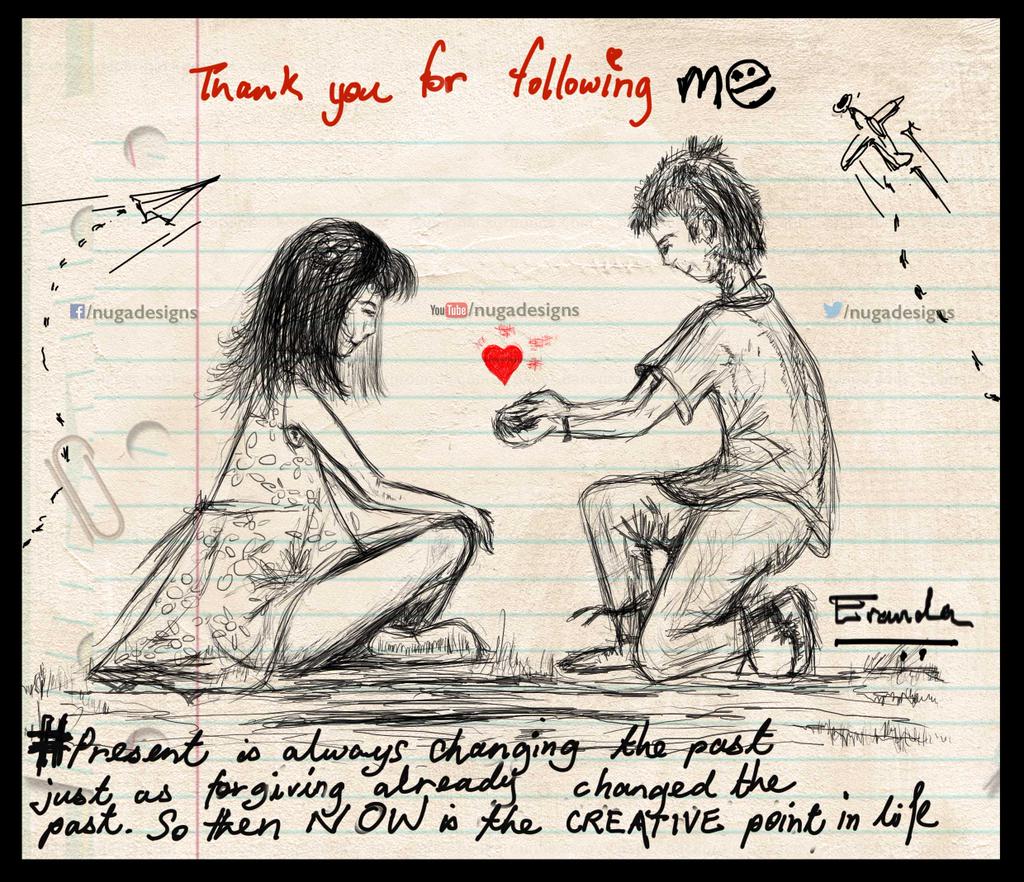 Thank you for following me
/nugadesigns
YouTube /nugadesigns
/nugadesigns
Eranda
#Present is always changing the past
just as forgiving already changed the
past. So then NOW is the CREATIVE point in life